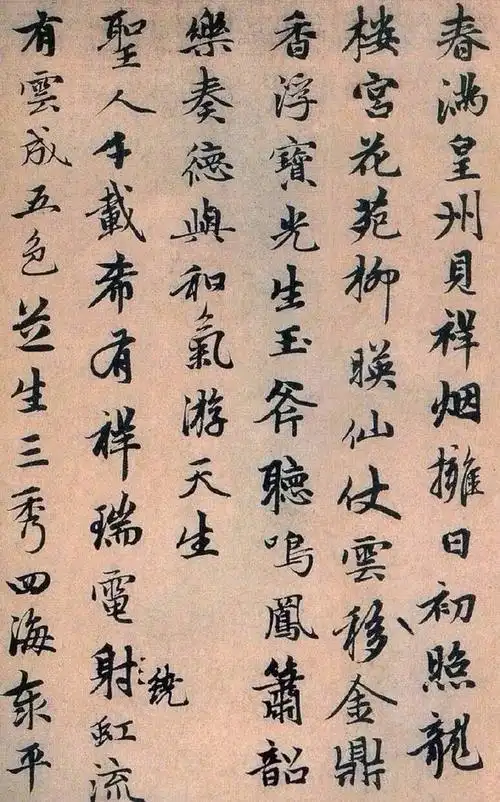 春滿皇州見祥烟擁日初照龍
樓宮花苑柳暎仙仗雲移金鼎
香浮寶光生玉斧聽鳴鳳簫韶
樂奏德與和氣游天生
繞
聖人千載希有祥瑞電射虹流
有雲成五色芝生三秀四海泰平